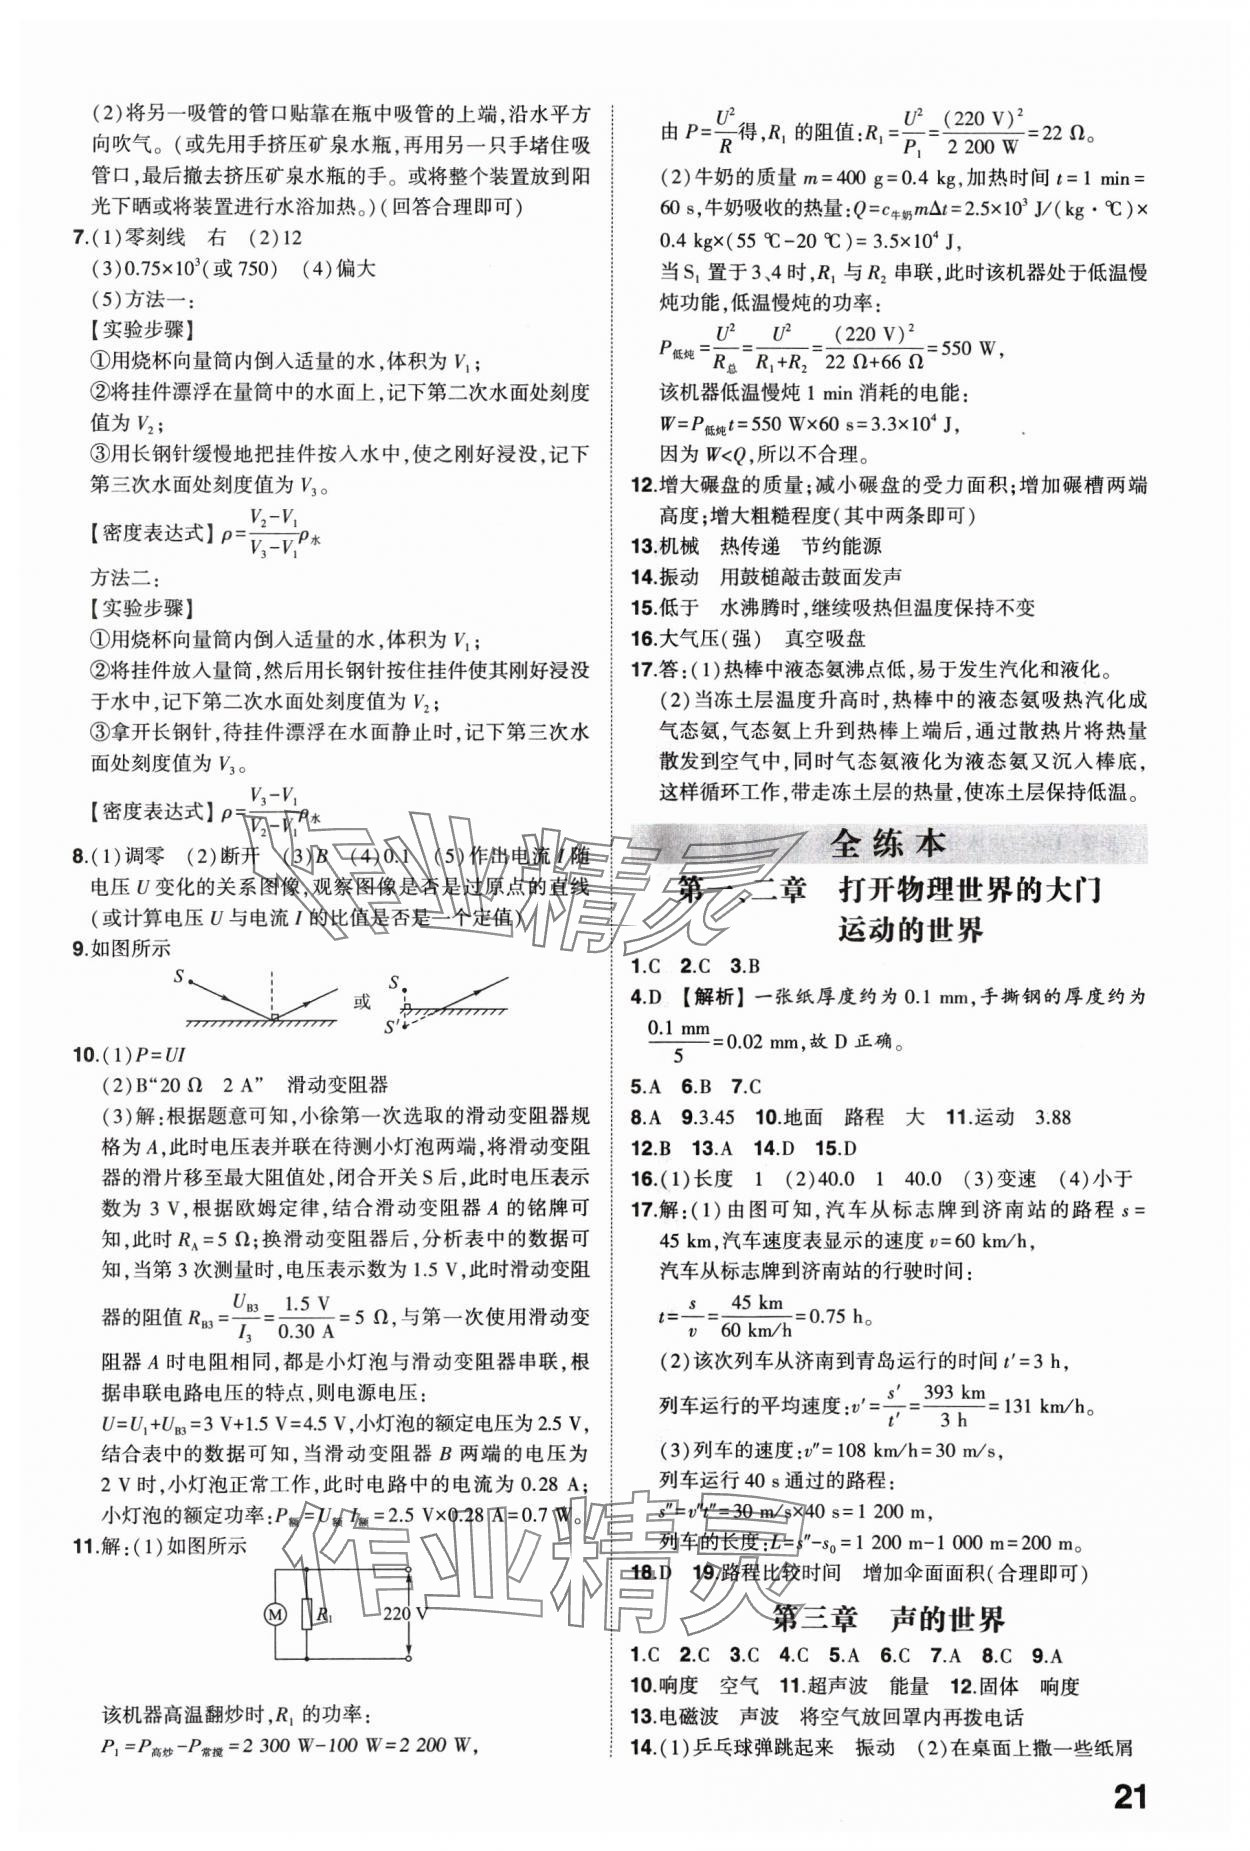 (2)将另一吸管的管口贴靠在瓶中吸管的上端,沿水平方
向吹气。(或先用手挤压矿泉水瓶,再用另一只手堵住吸
管口,最后撤去挤压矿泉水瓶的手。或将整个装置放到阳
光下晒或将装置进行水浴加热。)(回答合理即可)
7.(1)零刻线 右 (2)12
(3)0.75×10³(或 750) (4)偏大
(5)方法一:
【实验步骤】
①用烧杯向量筒内倒入适量的水,体积为 V₁;
②将挂件漂浮在量筒中的水面上,记下第二次水面处刻度
值为 V₂;
③用长钢针缓慢地把挂件按入水中,使之刚好浸没,记下
第三次水面处刻度值为 V₃。
【密度表达式】ρ=(V₂-V₁)/(V₃-V₁)ρ水
方法二:
【实验步骤】
①用烧杯向量筒内倒入适量的水,体积为 V₁;
②将挂件放入量筒,然后用长钢针按住挂件使其刚好浸没
于水中,记下第二次水面处刻度值为 V₂;
③拿开长钢针,待挂件漂浮在水面静止时,记下第三次水
面处刻度值为 V₃。
【密度表达式】ρ=(V₃-V₁)/(V₂-V₁)ρ水
8.(1)调零 (2)断开 (3)B (4)0.1 (5)作出电流 I 随
电压 U 变化的关系图像,观察图像是否是过原点的直线
(或计算电压 U 与电流 I 的比值是否是一个定值)
9.如图所示
S 或 S S′
10.(1)P=UI
(2)B“20 Ω 2 A” 滑动变阻器
(3)解:根据题意可知,小徐第一次选取的滑动变阻器规
格为 A,此时电压表并联在待测小灯泡两端,将滑动变阻
器的滑片移至最大阻值处,闭合开关 S 后,此时电压表示
数为 3 V,根据欧姆定律,结合滑动变阻器 A 的铭牌可
知,此时 R_A=5 Ω;换滑动变阻器后,分析表中的数据可
知,当第 3 次测量时,电压表示数为 1.5 V,此时滑动变阻
器的阻值 R_B3=U_B3/I₃=1.5 V/0.30 A=5 Ω,与第一次使用滑动变
阻器 A 时电阻相同,都是小灯泡与滑动变阻器串联,根
据串联电路电压的特点,则电源电压:
U=U₁+U_B3=3 V+1.5 V=4.5 V,小灯泡的额定电压为 2.5 V,
结合表中的数据可知,当滑动变阻器 B 两端的电压为
2 V 时,小灯泡正常工作,此时电路中的电流为 0.28 A;
小灯泡的额定功率:P额=U额I额=2.5 V×0.28 A=0.7 W。
11.解:(1)如图所示
M R₁ 220 V
该机器高温翻炒时,R₁ 的功率:
P₁=P高炒-P常搅=2 300 W-100 W=2 200 W,
由 P=U²/R得,R₁ 的阻值:R₁=U²/P₁=(220 V)²/2 200 W=22 Ω。
(2)牛奶的质量 m=400 g=0.4 kg,加热时间 t=1 min=
60 s,牛奶吸收的热量:Q=c牛奶mΔt=2.5×10³ J/(kg·℃)×
0.4 kg×(55 ℃-20 ℃)=3.5×10⁴ J,
当 S₁ 置于 3、4 时,R₁ 与 R₂ 串联,此时该机器处于低温慢
炖功能,低温慢炖的功率:
P低炖=U²/R总=U²/(R₁+R₂)=(220 V)²/(22 Ω+66 Ω)=550 W,
该机器低温慢炖 1 min 消耗的电能:
W=P低炖t=550 W×60 s=3.3×10⁴ J,
因为 W<Q,所以不合理。
12.增大碾盘的质量;减小碾盘的受力面积;增加碾槽两端
高度;增大粗糙程度(其中两条即可)
13.机械 热传递 节约能源
14.振动 用鼓槌敲击鼓面发声
15.低于 水沸腾时,继续吸热但温度保持不变
16.大气压(强) 真空吸盘
17.答:(1)热棒中液态氨沸点低,易于发生汽化和液化。
(2)当冻土层温度升高时,热棒中的液态氨吸热汽化成
气态氨,气态氨上升到热棒上端后,通过散热片将热量
散发到空气中,同时气态氨液化为液态氨又沉入棒底,
这样循环工作,带走冻土层的热量,使冻土层保持低温。
全练本
第一、二章 打开物理世界的大门
运动的世界
1.C 2.C 3.B
4.D 【解析】一张纸厚度约为 0.1 mm,手撕钢的厚度约为
0.1 mm/5=0.02 mm,故 D 正确。
5.A 6.B 7.C
8.A 9.3.45 10.地面 路程 大 11.运动 3.88
12.B 13.A 14.D 15.D
16.(1)长度 1 (2)40.0 1 40.0 (3)变速 (4)小于
17.解:(1)由图可知,汽车从标志牌到济南站的路程 s=
45 km,汽车速度表显示的速度 v=60 km/h,
汽车从标志牌到济南站的行驶时间:
t=s/v=45 km/60 km/h=0.75 h。
(2)该次列车从济南到青岛运行的时间 t′=3 h,
列车运行的平均速度:v′=s′/t′=393 km/3 h=131 km/h。
(3)列车的速度:v″=108 km/h=30 m/s,
列车运行 40 s 通过的路程:
s″=v″t″=30 m/s×40 s=1 200 m,
列车的长度:L=s″-s₀=1 200 m-1 000 m=200 m。
18.D 19.路程比较时间 增加伞面面积(合理即可)
第三章 声的世界
1.C 2.C 3.C 4.C 5.A 6.C 7.A 8.C 9.A
10.响度 空气 11.超声波 能量 12.固体 响度
13.电磁波 声波 将空气放回罩内再拨电话
14.(1)乒乓球弹跳起来 振动 (2)在桌面上撒一些纸屑
21
作业精灵
作业精灵